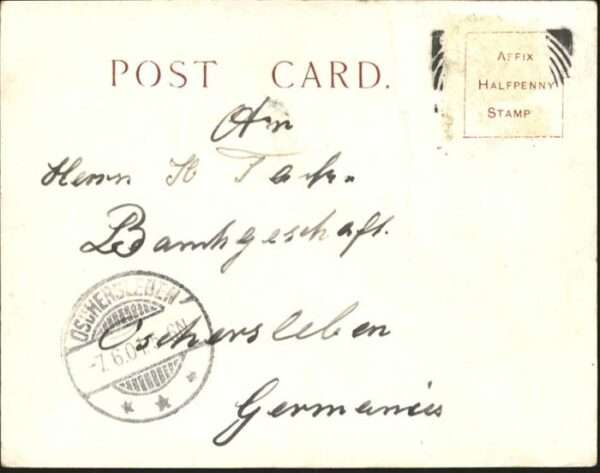 POST CARD.
AFFIX
HALFPENNY
STAMP
An
Herrn H
Bankgeschäft.
Oschersleben
Germanien
OSCHERSLEBEN
-7.6.04